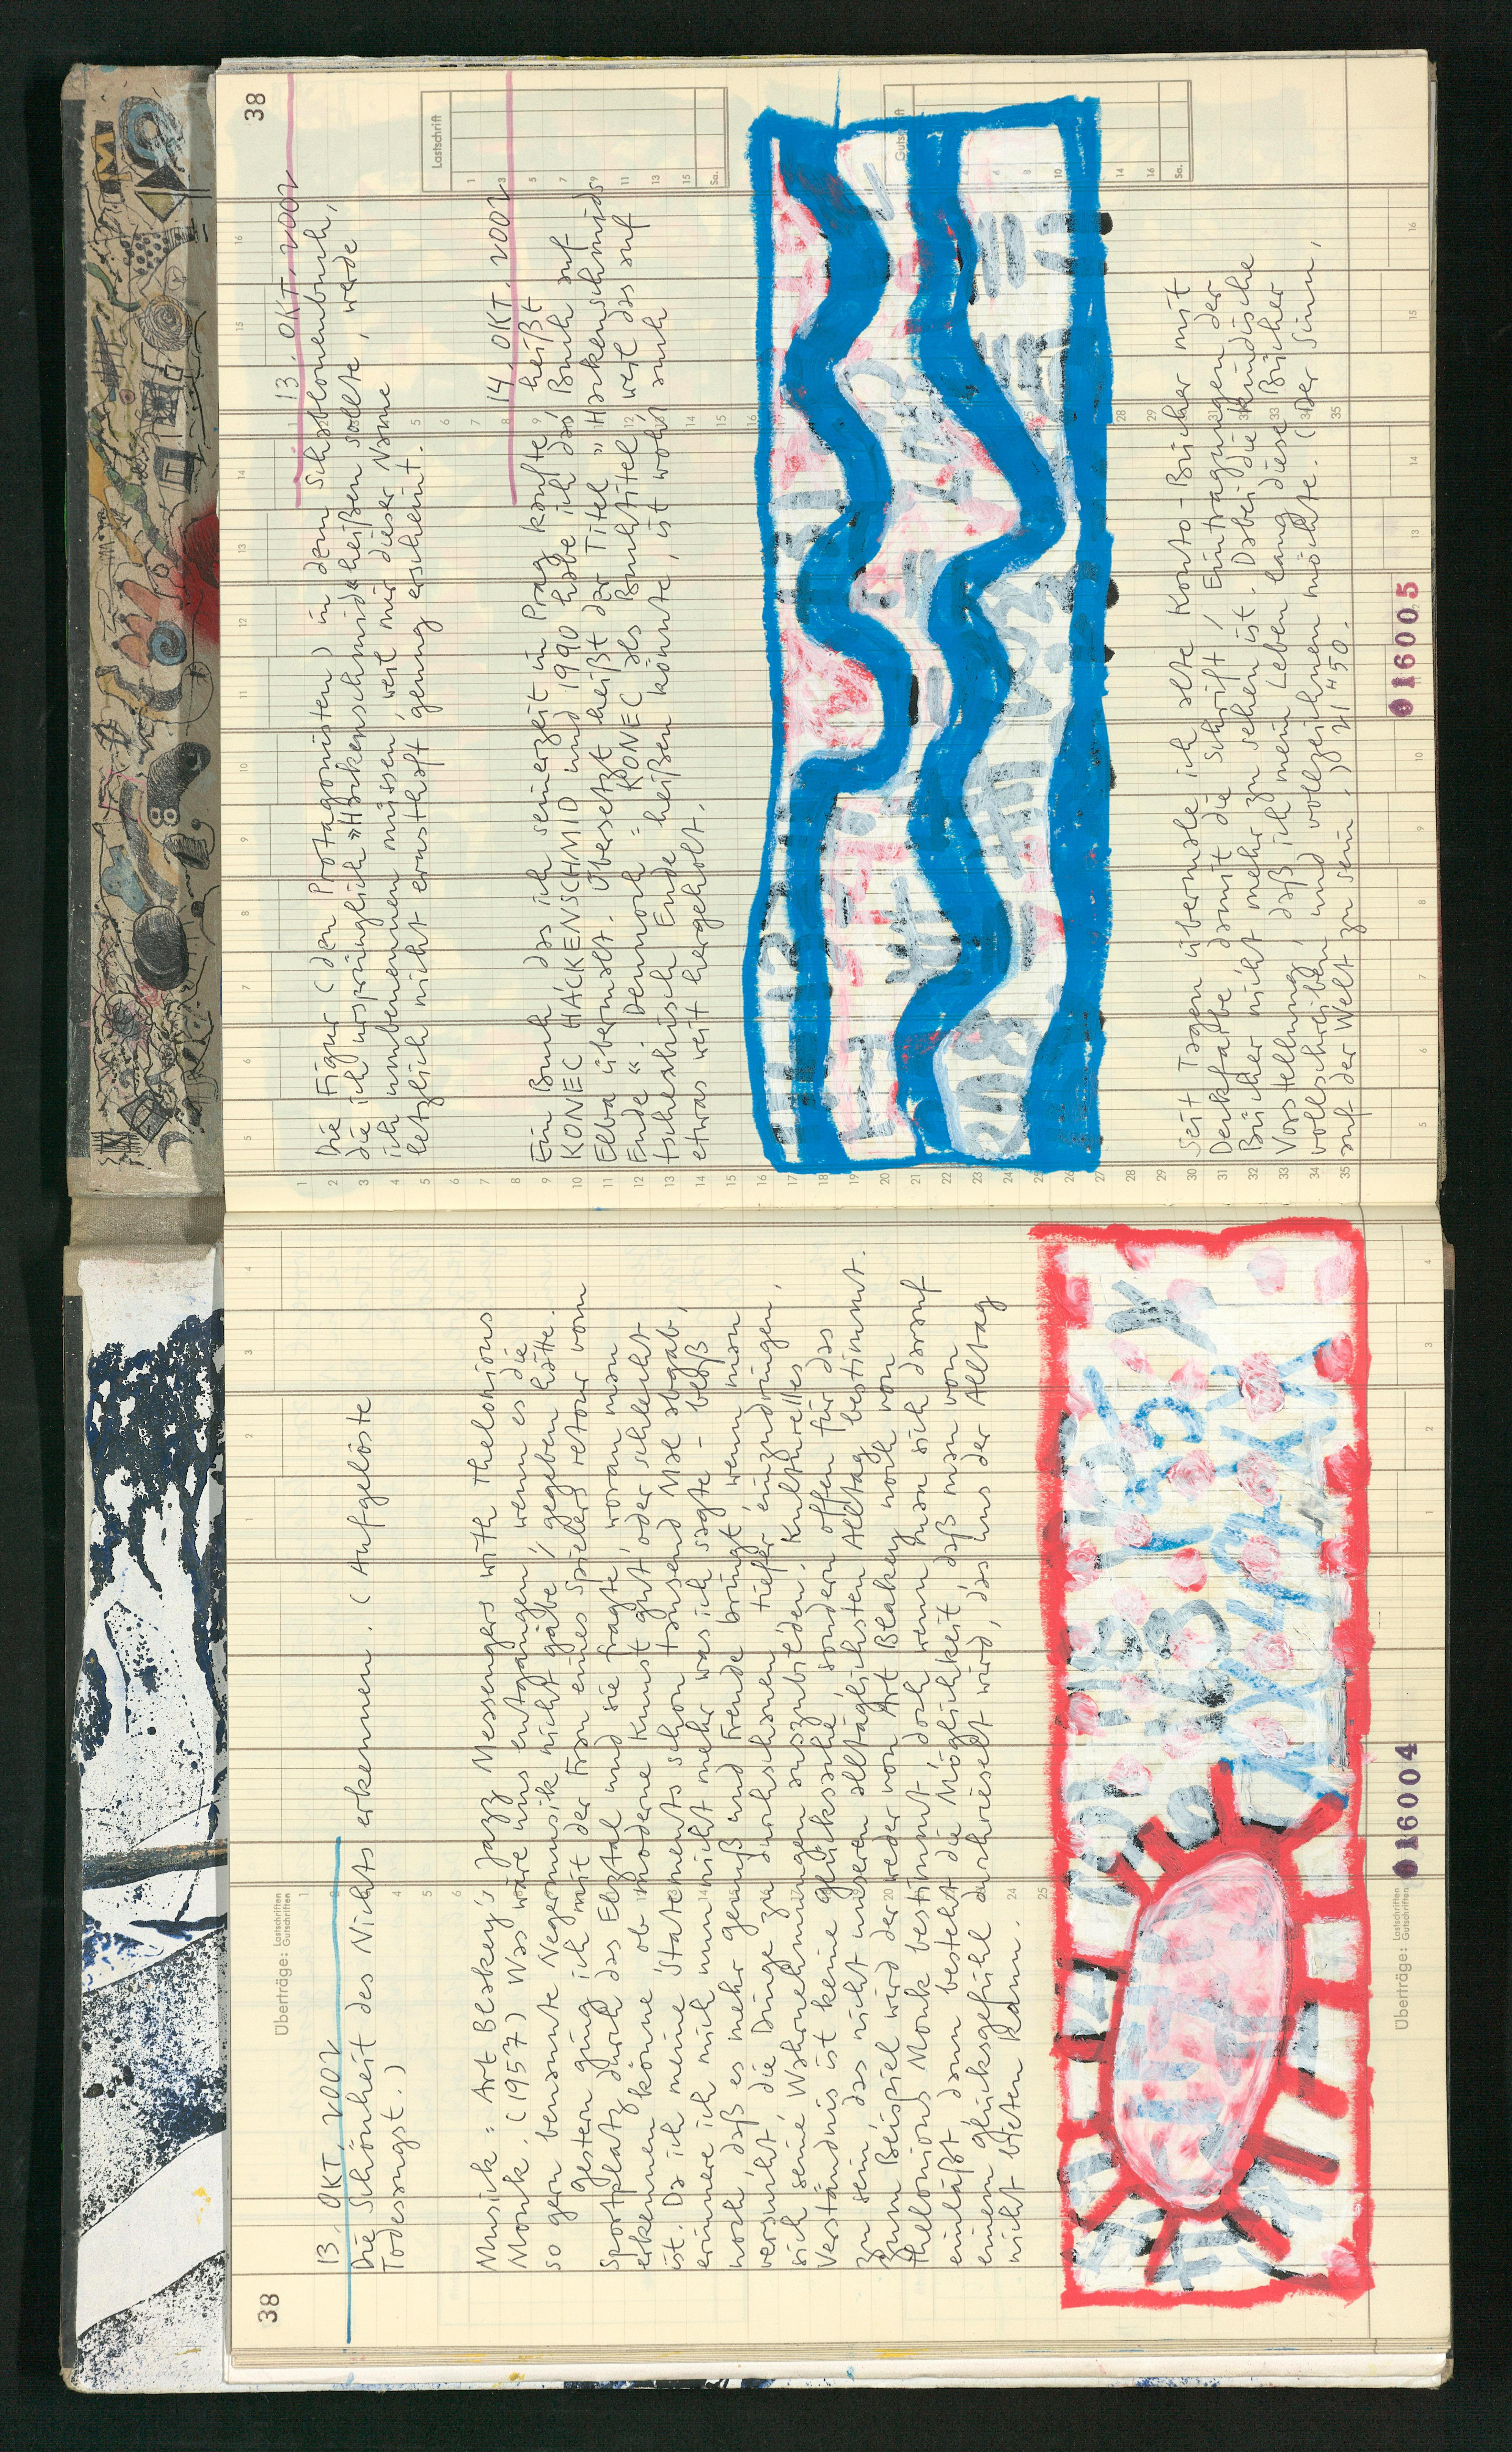 38
Überträge: Lastschriften
Gutschriften
13. OKT. 2002
Die Schönheit des Nichts erkennen. (Aufgelöste
Todesangst.)
Musik: Art Blakey's Jazz Messengers with Thelonious
Monk. (1957) Was wäre uns entgangen, wenn es die
so gern benannte Negermusik nicht gäbe / gegeben hätte.
Gestern ging ich mit der Frau eines Spielers retour vom
Sportplatz durch das Elztal und sie fragte, woran man
erkennen könne ob moderne Kunst gut oder schlecht
ist. Da ich meine Statements schon tausend Mal abgab,
erinnere ich mich nun nicht mehr was ich sagte – bloß
noch daß es mehr Genuß und Freude bringt, wenn man
versucht, die Dinge zu durchschauen, tiefer einzudringen,
sich seine Wahrnehmungen auszubilden. Kulturelles
Verständnis ist keine Glücksache, sondern offen für das
zu sein, das nicht unseren alltäglichsten Alltag bestimmt.
Zum Beispiel wird der weder von Art Blakey noch von
Thelonious Monk bestimmt, doch wenn man sich darauf
einläßt, dann besteht die Möglichkeit, daß man von
einem Glücksgefühl durchrieselt wird, das uns der Alltag
nicht bieten kann.
Überträge: Lastschriften
Gutschriften
016004
38
13. OKT. 2002
Die Figur (den Protagonisten) in dem Schablonenbuch,
die ich ursprünglich »Hackenschmid« heißen sollte, werde
ich umbenennen müssen, weil mir dieser Name
letzlich nicht ernsthaft genug erscheint.
14. OKT. 2002
Ein Buch, das ich seinerzeit in Prag kaufte, heißt
KONEC HACKENSCHMID und 1990 habe ich das Buch auf
Elba übermalt. Übersetzt heißt der Titel »Hackenschmids
Ende«. Dennoch: KONEC als Buchtitel, weil das auf
tschechisch Ende heißen könnte, ist wohl auch
etwas weit hergeholt.
Lastschrift
Gutschrift
Seit Tagen übermale ich alte Konto-Bücher mit
Deckfarbe damit die Schrift / Eintragungen der
Bücher nicht mehr zu sehen ist. Dabei die kindische
Vorstellung, daß ich mein Leben lang diese Bücher
vollschreiben und vollzeichnen möchte. (Der Sinn,
auf der Welt zu sein.) 21 h 50.
016005